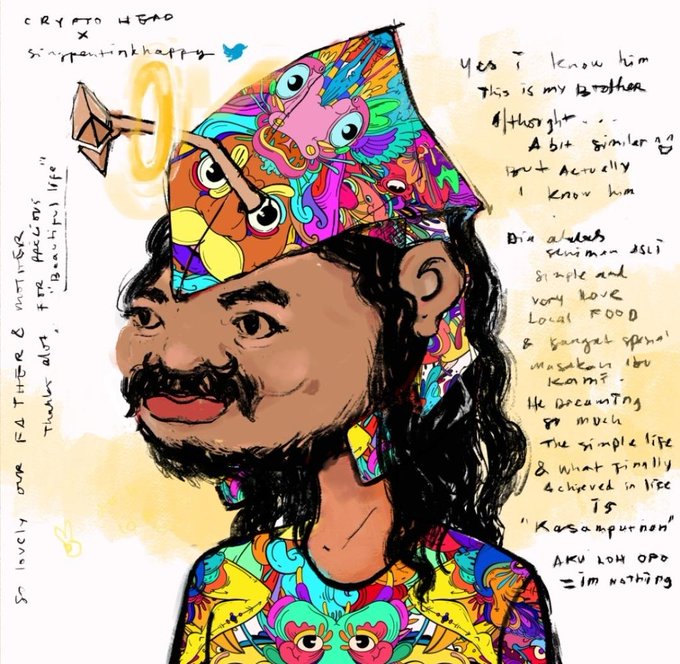 CRYPTO HEAD
X
singpentinkhappy
Yes i know him
This is my Brother
A bit similar
But Actually
I know him
Dia adalah
seniman ASLI
simple and
very Love
Local FOOD
& sangat spesial
masakan ibu
kami.
He Dreaming
so much
The simple life
& what Finally
Achieved in life
Is
"Kasampurnan"
AKU LOH OPO
= im nothing
So lovely our FATHER & MOTHER
Thanks alot, FOR PRECIOUS
"Beautiful life"